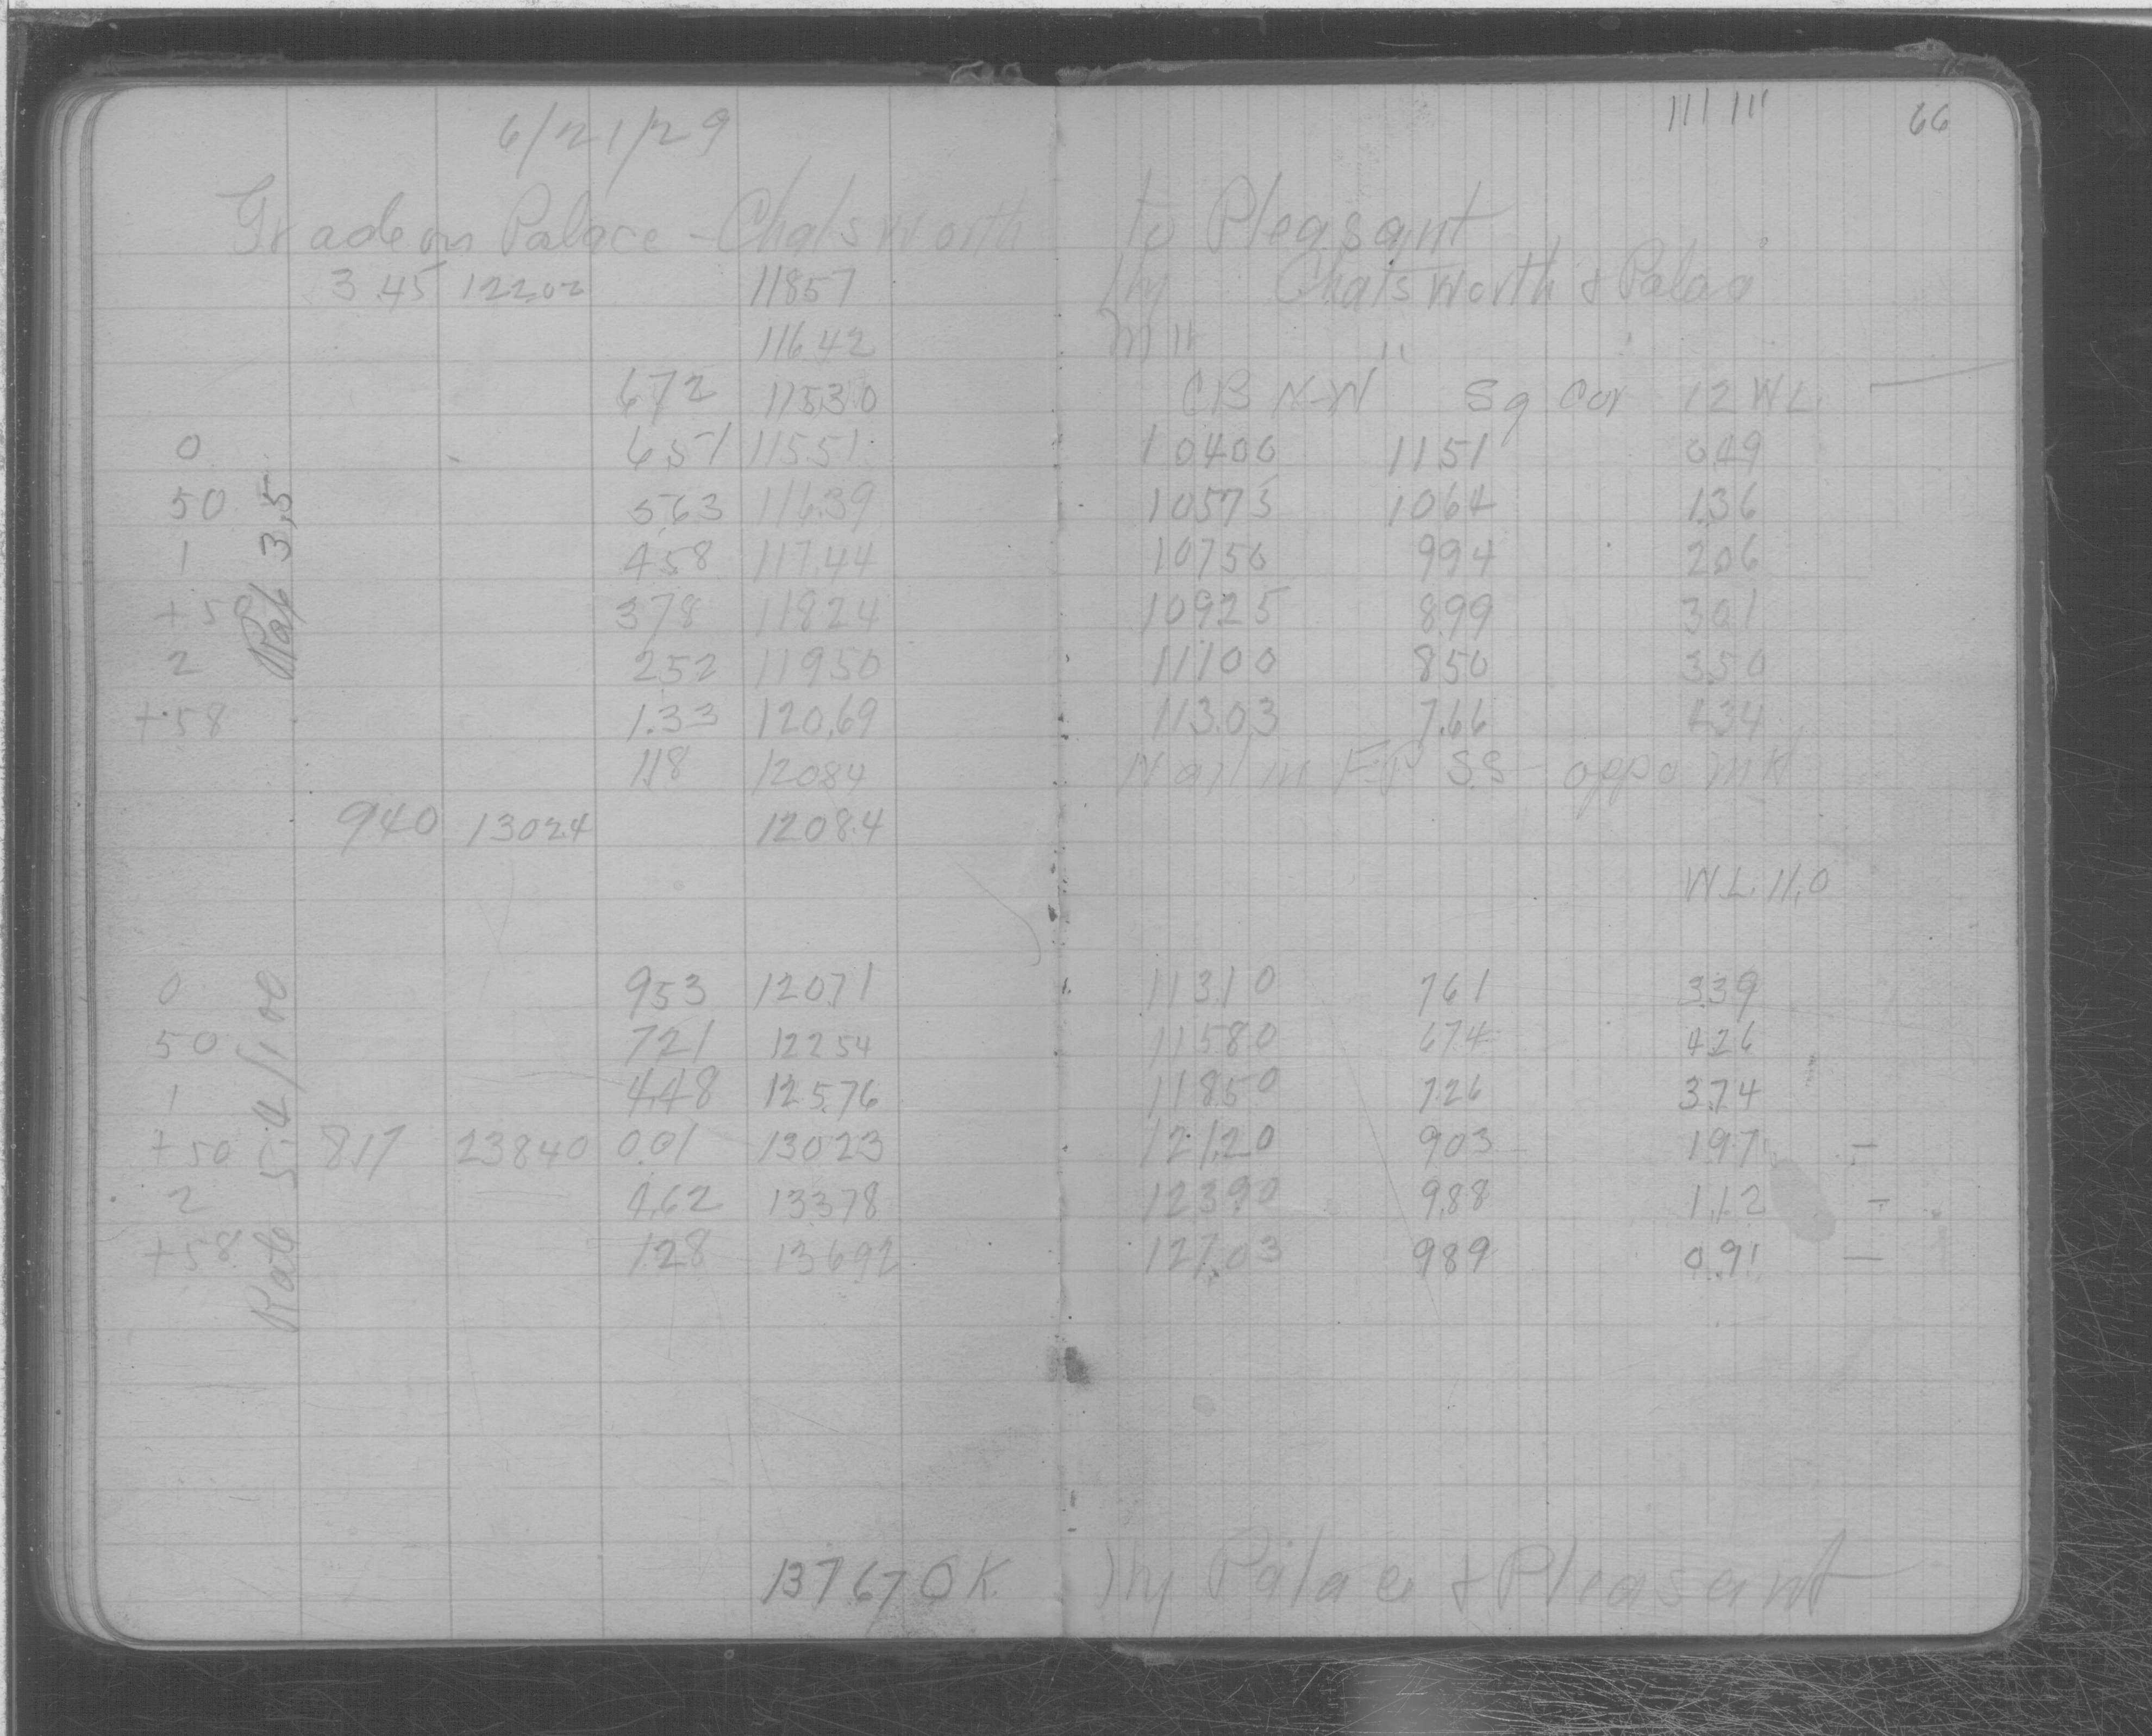 66
6/21/29
Grade on Palace - Chatsworth to Pleasant
3.45 12202 11857 Chatsworth & Palac
116.42 " "
672 11530 CB N-W Sq Cor 12 WL.
0 651 11551 10400 1151 049
50 563 116.39 10575 1064 136
1 458 117.44 10750 994 206
+50 378 11824 10925 899 301
2 252 11950 11100 850 350
+58 1.33 120.69 113.03 7.66 434
Rate 3.5
118 12084 Nail in F.P SS oppo MH
940 13024 12084
WL. 11.0
0 953 12071 11310 761 339
50 721 12254 11580 674 426
1 4.48 125.76 11850 726 374
+50 817 23840 001 13023 12120 903 197 -
2 462 13378 12390 988 1.12 -
+58 128 13692 127.03 989 0.91 -
Rate 5.4/100
13767 OK. Hy Palace & Pleasant